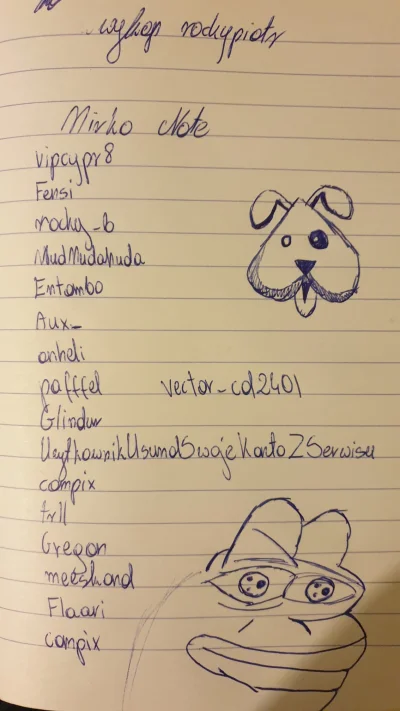 wykop rockypiotr
Mirko Note
vipcypr8
Fensi
rocky_b
MudMudahuda
Entombo
Aux_
anheli
pafffel vector_cd2401
Glindur
UzytkownikUsunalSwojeKontoZSerwisu
compix
trll
Gregon
meeskand
Flaari
compix